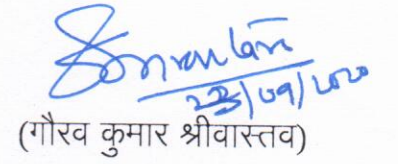 23/09/2020
(गौरव कुमार श्रीवास्तव)